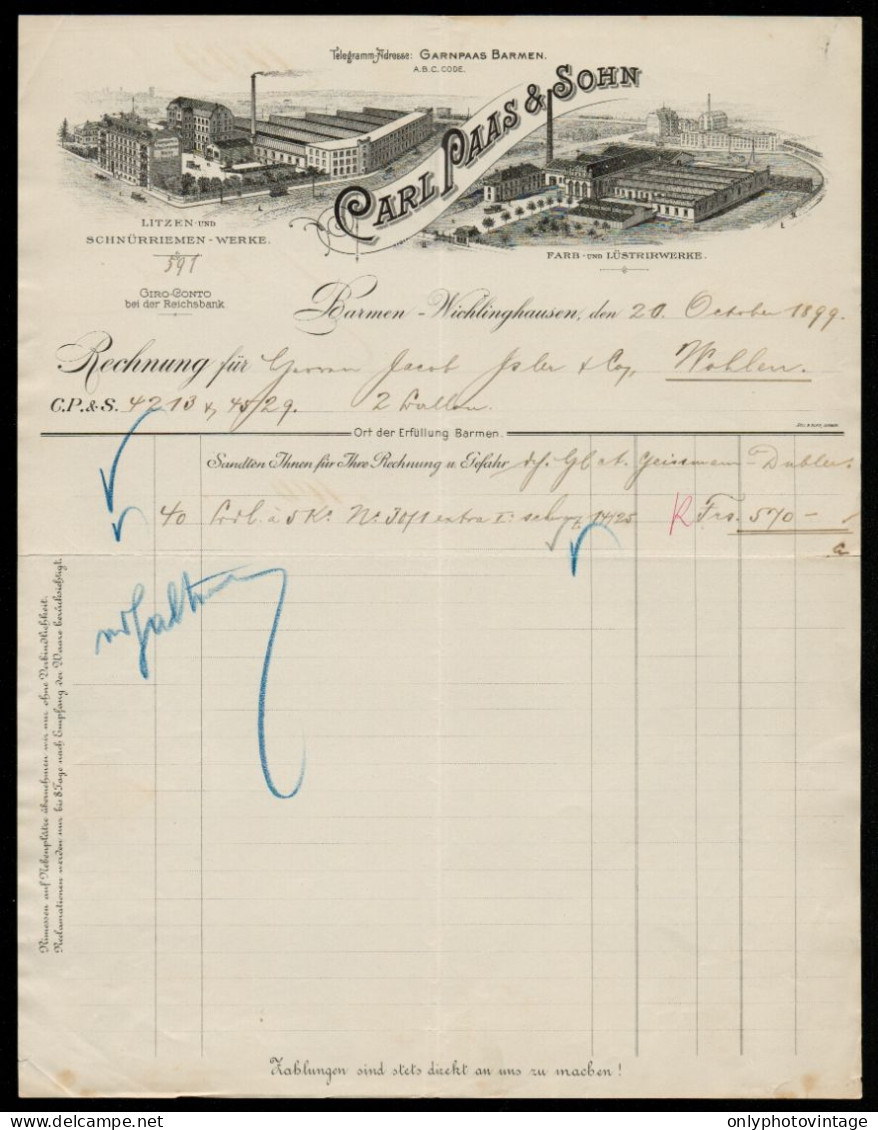 Telegramm-Adresse: GARNPAAS BARMEN.
A.B.C. CODE.
CARL PAAS & SOHN
LITZEN- UND
SCHNÜRRIEMEN-WERKE.
591
FARB- UND LÜSTRIRWERKE.
GIRO-CONTO
bei der Reichsbank.
Barmen-Wichlinghausen, den 20. October 1899.
Rechnung für Herren Jacob Isler & Co, Wohlen.
C.P.&S. 4213 & 4529. 2 Ballen.
Ort der Erfüllung Barmen.
Sandten Ihnen für Ihre Rechnung u. Gefahr
40 à 5 Ko. No. 30/1 extra 14/25 R Frs. 570 -
Rimessen auf Nebenplätze übernehmen wir nur ohne Verbindlichkeit.
Reclamationen werden nur bis 8 Tage nach Empfang der Waare berücksichtigt.
Zahlungen sind stets direkt an uns zu machen!
delcampe.net
onlyphotovintage